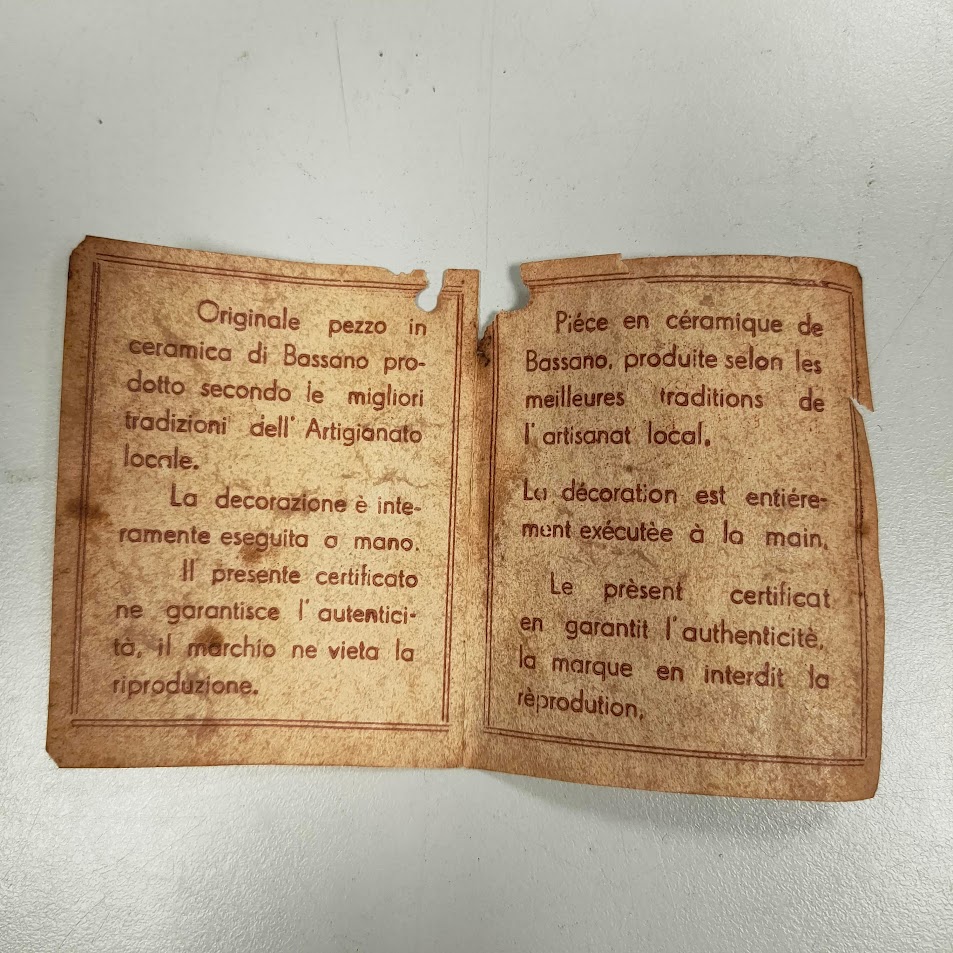 Originale pezzo in
ceramica di Bassano pro-
dotto secondo le migliori
tradizioni dell' Artigianato
locale.
La decorazione è inte-
ramente eseguita a mano.
Il presente certificato
ne garantisce l' autentici-
tà, il marchio ne vieta la
riproduzione.
Piéce en céramique de
Bassano, produite selon les
meilleures traditions de
l'artisanat local.
La décoration est entiére-
ment exécutèe à la main.
Le prèsent certificat
en garantit l'authenticitè,
la marque en interdit la
rèprodution.